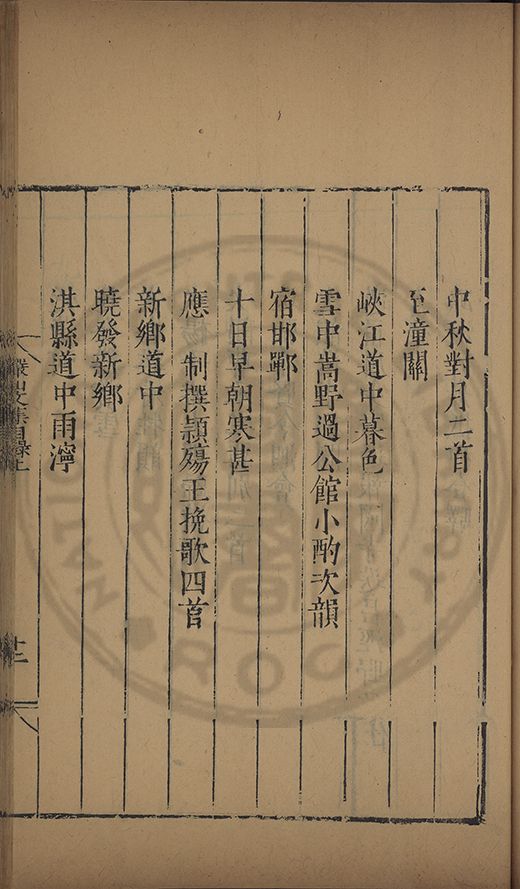 中秋對月二首
至潼關
峽江道中暮色
雪中嵩野過公館小酌次韻
宿邯鄲
十日早朝寒甚
應 制撰潁殤王挽歌四首
新鄉道中
曉發新鄉
淇縣道中雨濘
儼山文集目錄上
十二